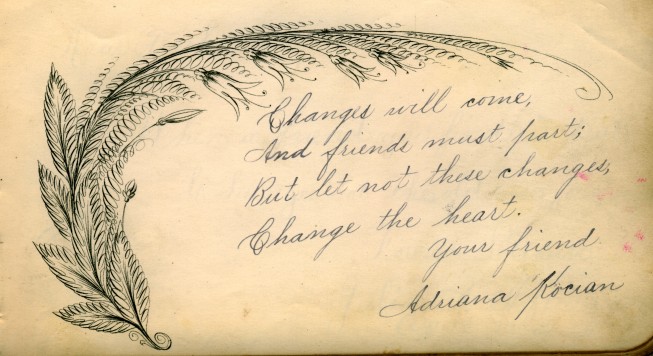 Changes will come,
And friends must part;
But let not these changes,
Change the heart.
Your friend
Adriana Kocian